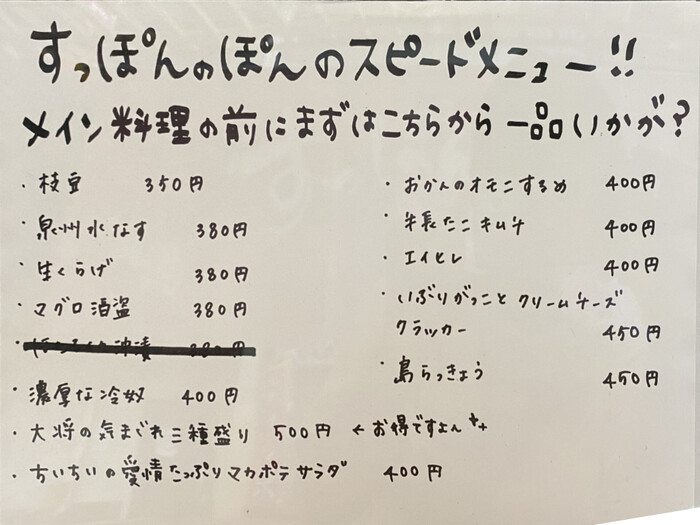 すっぽんのぽんのスピードメニュー!!
メイン料理の前にまずはこちらから一品いかが?
・枝豆 350円
・泉州水なす 380円
・生くらげ 380円
・マグロ酒盗 380円
380円
・濃厚な冷奴 400円
・大将の気まぐれ三種盛り 500円 ←お得ですよん
・ちいちいの愛情たっぷりマカポテサラダ 400円
・おかんのオモニするめ 400円
・半長たこキムチ 400円
・エイヒレ 400円
・いぶりがっことクリームチーズ
クラッカー 450円
・島らっきょう 450円